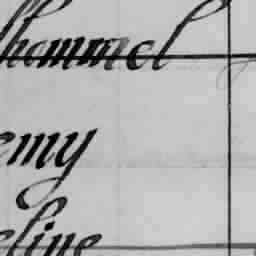 hammel
emy
eline